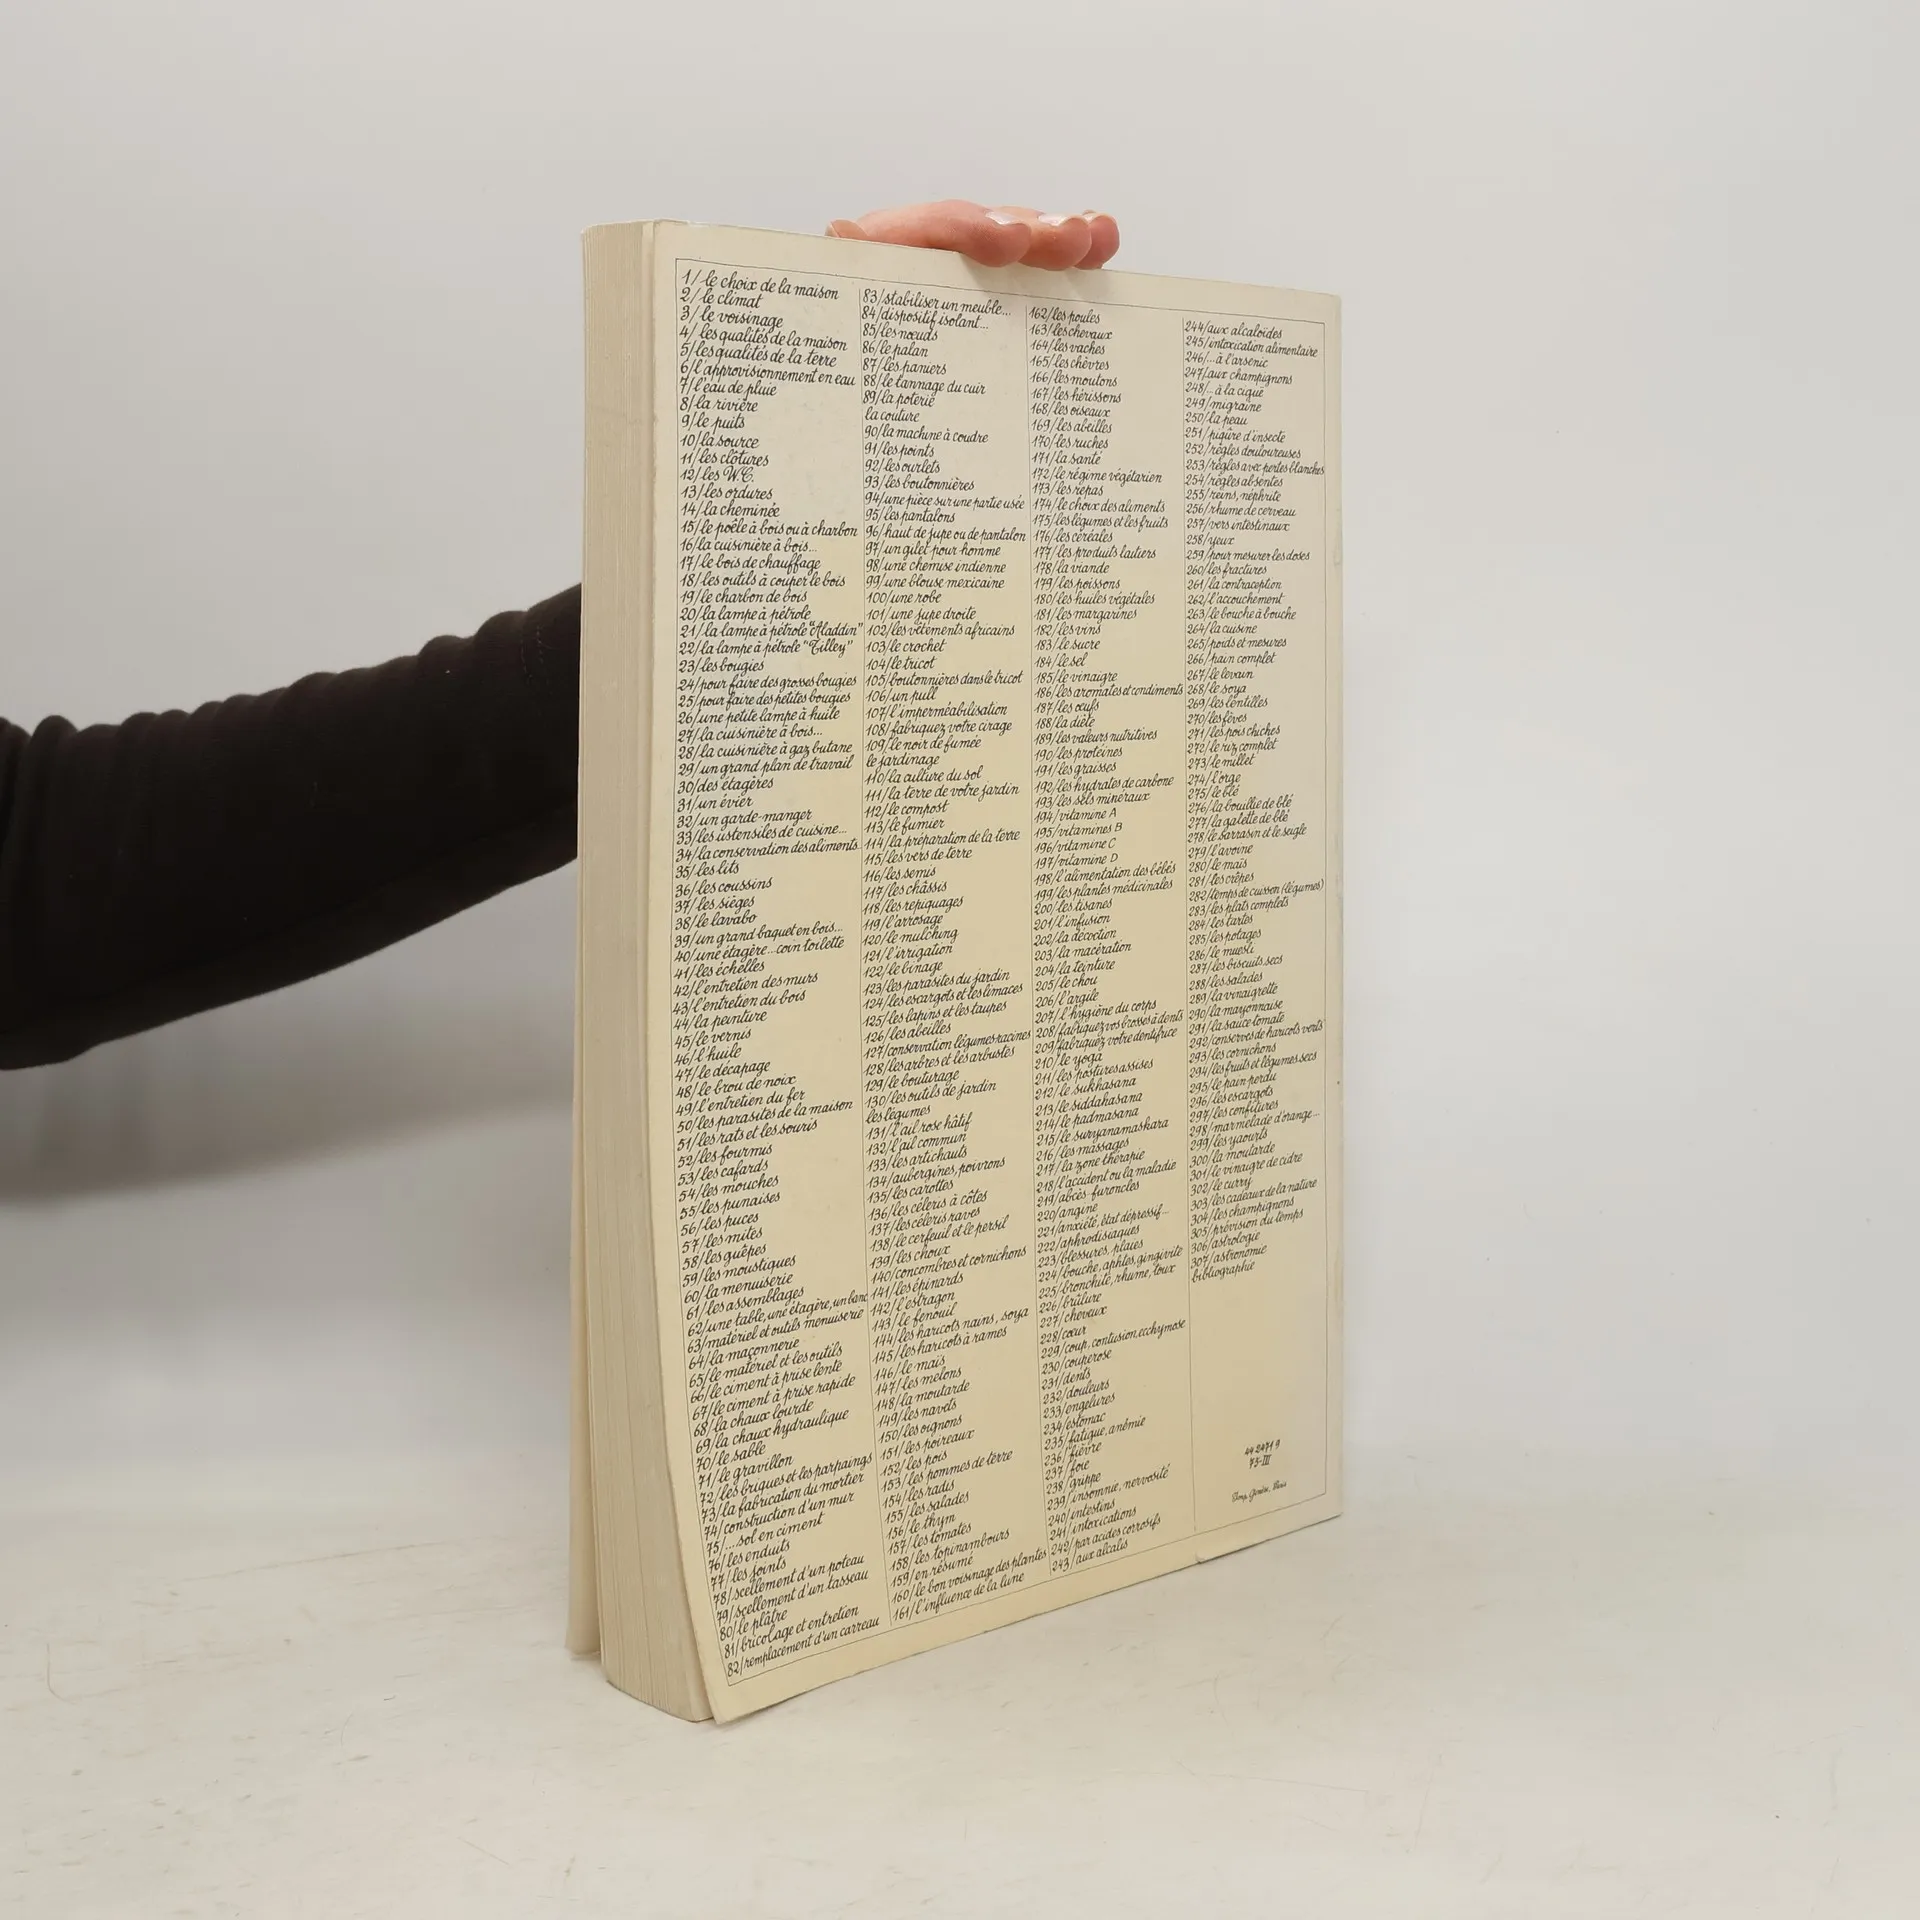 1/le choix de la maison
2/le climat
3/le voisinage
4/les qualités de la maison
5/les qualités de la terre
6/l'approvisionnement en eau
7/l'eau de pluie
8/la rivière
9/le puits
10/la source
11/les clôtures
12/les W.C.
13/les ordures
14/la cheminée
15/le poêle à bois ou à charbon
16/la cuisinière à bois...
17/le bois de chauffage
18/les outils à couper le bois
19/le charbon de bois
20/la lampe à pétrole
21/la lampe à pétrole "Aladdin"
22/la lampe à pétrole "Tilley"
23/les bougies
24/pour faire des grosses bougies
25/pour faire des petites bougies
26/une petite lampe à huile
27/la cuisinière à bois...
28/la cuisinière à gaz butane
29/un grand plan de travail
30/des étagères
31/un évier
32/un garde-manger
33/les ustensiles de cuisine...
34/la conservation des aliments...
35/les lits
36/les coussins
37/les sièges
38/le lavabo
39/un grand baquet en bois...
40/une étagère...coin toilette
41/les échelles
42/l'entretien des murs
43/l'entretien du bois
44/la peinture
45/le vernis
46/l'huile
47/le décapage
48/le brou de noix
49/l'entretien du fer
50/les parasites de la maison
51/les rats et les souris
52/les fourmis
53/les cafards
54/les mouches
55/les punaises
56/les puces
57/les mites
58/les guêpes
59/les moustiques
60/la menuiserie
61/les assemblages
62/une table, une étagère, un banc
63/matériel et outils menuiserie
64/la maçonnerie
65/le matériel et les outils
66/le ciment à prise lente
67/le ciment à prise rapide
68/la chaux lourde
69/la chaux hydraulique
70/le sable
71/le gravillon
72/les briques et les parpaings
73/la fabrication du mortier
74/construction d'un mur
75/...sol en ciment
76/les enduits
77/les joints
78/scellement d'un poteau
79/scellement d'un tasseau
80/le plâtre
81/bricolage et entretien
82/remplacement d'un carreau
83/stabiliser un meuble...
84/dispositif isolant...
85/les nœuds
86/le palan
87/les paniers
88/le tannage du cuir
89/la poterie
la couture
90/la machine à coudre
91/les points
92/les ourlets
93/les boutonnières
94/une pièce sur une partie usée
95/les pantalons
96/haut de jupe ou de pantalon
97/un gilet pour homme
98/une chemise indienne
99/une blouse mexicaine
100/une robe
101/une jupe droite
102/les vêtements africains
103/le crochet
104/le tricot
105/boutonnières dans le tricot
106/un pull
107/l'imperméabilisation
108/fabriquez votre cirage
109/le noir de fumée
le jardinage
110/la culture du sol
111/la terre de votre jardin
112/le compost
113/le fumier
114/la préparation de la terre
115/les vers de terre
116/les semis
117/les châssis
118/les repiquages
119/l'arrosage
120/le mulching
121/l'irrigation
122/le binage
123/les parasites du jardin
124/les escargots et les limaces
125/les lapins et les taupes
126/les abeilles
127/conservation légumes racines
128/les arbres et les arbustes
129/le bouturage
130/les outils de jardin
les légumes
131/l'ail rose hâtif
132/l'ail commun
133/les artichauts
134/aubergines, poivrons
135/les carottes
136/les céleris à côtes
137/les céleris raves
138/le cerfeuil et le persil
139/les choux
140/concombres et cornichons
141/les épinards
142/l'estragon
143/le fenouil
144/les haricots nains, soya
145/les haricots à rames
146/le maïs
147/les melons
148/la moutarde
149/les navets
150/les oignons
151/les poireaux
152/les pois
153/les pommes de terre
154/les radis
155/les salades
156/le thym
157/les tomates
158/les topinambours
159/en résumé
160/le bon voisinage des plantes
161/l'influence de la lune
162/les poules
163/les chevaux
164/les vaches
165/les chèvres
166/les moutons
167/les hérissons
168/les oiseaux
169/les abeilles
170/les ruches
171/la santé
172/le régime végétarien
173/les repas
174/le choix des aliments
175/les légumes et les fruits
176/les céréales
177/les produits laitiers
178/la viande
179/les poissons
180/les huiles végétales
181/les margarines
182/les vins
183/le sucre
184/le sel
185/le vinaigre
186/les aromates et condiments
187/les œufs
188/la diète
189/les valeurs nutritives
190/les protéines
191/les graisses
192/les hydrates de carbone
193/les sels minéraux
194/vitamine A
195/vitamines B
196/vitamine C
197/vitamine D
198/l'alimentation des bébés
199/les plantes médicinales
200/les tisanes
201/l'infusion
202/la décoction
203/la macération
204/la teinture
205/le chou
206/l'argile
207/l'hygiène du corps
208/fabriquez vos brosses à dents
209/fabriquez votre dentifrice
210/le yoga
211/les postures assises
212/le sukhasana
213/le siddahasana
214/le padmasana
215/le suryanamaskara
216/les massages
217/la zone thérapie
218/l'accident ou la maladie
219/abcès-furoncles
220/angine
221/anxiété, état dépressif...
222/aphrodisiaques
223/blessures, plaies
224/bouche, aphtes, gingivite
225/bronchite, rhume, toux
226/brûlure
227/cheveux
228/cœur
229/coup, contusion, ecchymose
230/couperose
231/dents
232/douleurs
233/engelures
234/estomac
235/fatigue, anémie
236/fièvre
237/foie
238/grippe
239/insomnie, nervosité
240/intestins
241/intoxications
242/par acides corrosifs
243/aux alcalis
244/aux alcaloïdes
245/intoxication alimentaire
246/...à l'arsenic
247/aux champignons
248/...à la ciguë
249/migraine
250/la peau
251/piqûre d'insecte
252/règles douloureuses
253/règles avec pertes blanches
254/règles absentes
255/reins, néphrite
256/rhume de cerveau
257/vers intestinaux
258/yeux
259/pour mesurer les doses
260/les fractures
261/la contraception
262/l'accouchement
263/le bouche à bouche
264/la cuisine
265/poids et mesures
266/pain complet
267/le levain
268/le soya
269/les lentilles
270/les fèves
271/les pois chiches
272/le riz complet
273/le millet
274/l'orge
275/le blé
276/la bouillie de blé
277/la galette de blé
278/le sarrasin et le seigle
279/l'avoine
280/le maïs
281/les crêpes
282/temps de cuisson (légumes)
283/les plats complets
284/les tartes
285/les potages
286/le muesli
287/les biscuits secs
288/les salades
289/la vinaigrette
290/la mayonnaise
291/la sauce tomate
292/conserves de haricots verts
293/les cornichons
294/les fruits et légumes secs
295/le pain perdu
296/les escargots
297/les confitures
298/marmelade d'orange...
299/les yaourts
300/la moutarde
301/le vinaigre de cidre
302/le curry
303/les cadeaux de la nature
304/les champignons
305/prévision du temps
306/astrologie
307/astronomie
bibliographie
44 2471 9
75-III